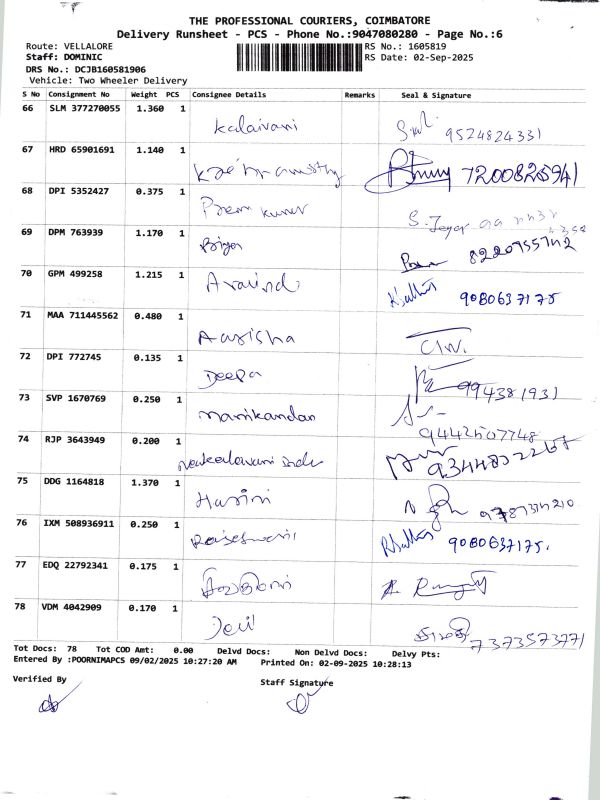 THE PROFESSIONAL COURIERS, COIMBATORE
Delivery Runsheet - PCS - Phone No.:9047080280 - Page No.:6
Route: VELLALORE RS No.: 1605819
Staff: DOMINIC RS Date: 02-Sep-2025
DRS No.: DCJB160581906
Vehicle: Two Wheeler Delivery
S No Consignment No Weight PCS Consignee Details Remarks Seal & Signature
66 SLM 377270055 1.360 1
Kalaivani 9524824331
67 HRD 65901691 1.140 1
7200826941
68 DPI 5352427 0.375 1
Prem kumar
69 DPM 763939 1.170 1
8220755742
70 GPM 499258 1.215 1
Aravind 9080637175
71 MAA 711445562 0.480 1
Aarisha
72 DPI 772745 0.135 1
Deepa 994381931
73 SVP 1670769 0.250 1
Manikandan 9442507748
74 RJP 3643949 0.200 1
75 DDG 1164818 1.370 1
Harini
76 IXM 508936911 0.250 1
9080637175.
77 EDQ 22792341 0.175 1
78 VDM 4042909 0.170 1
7373573771
Tot Docs: 78 Tot COD Amt: 0.00 Delvd Docs: Non Delvd Docs: Delvy Pts:
Entered By :POORNIMAPCS 09/02/2025 10:27:20 AM Printed On: 02-09-2025 10:28:13
Verified By Staff Signature